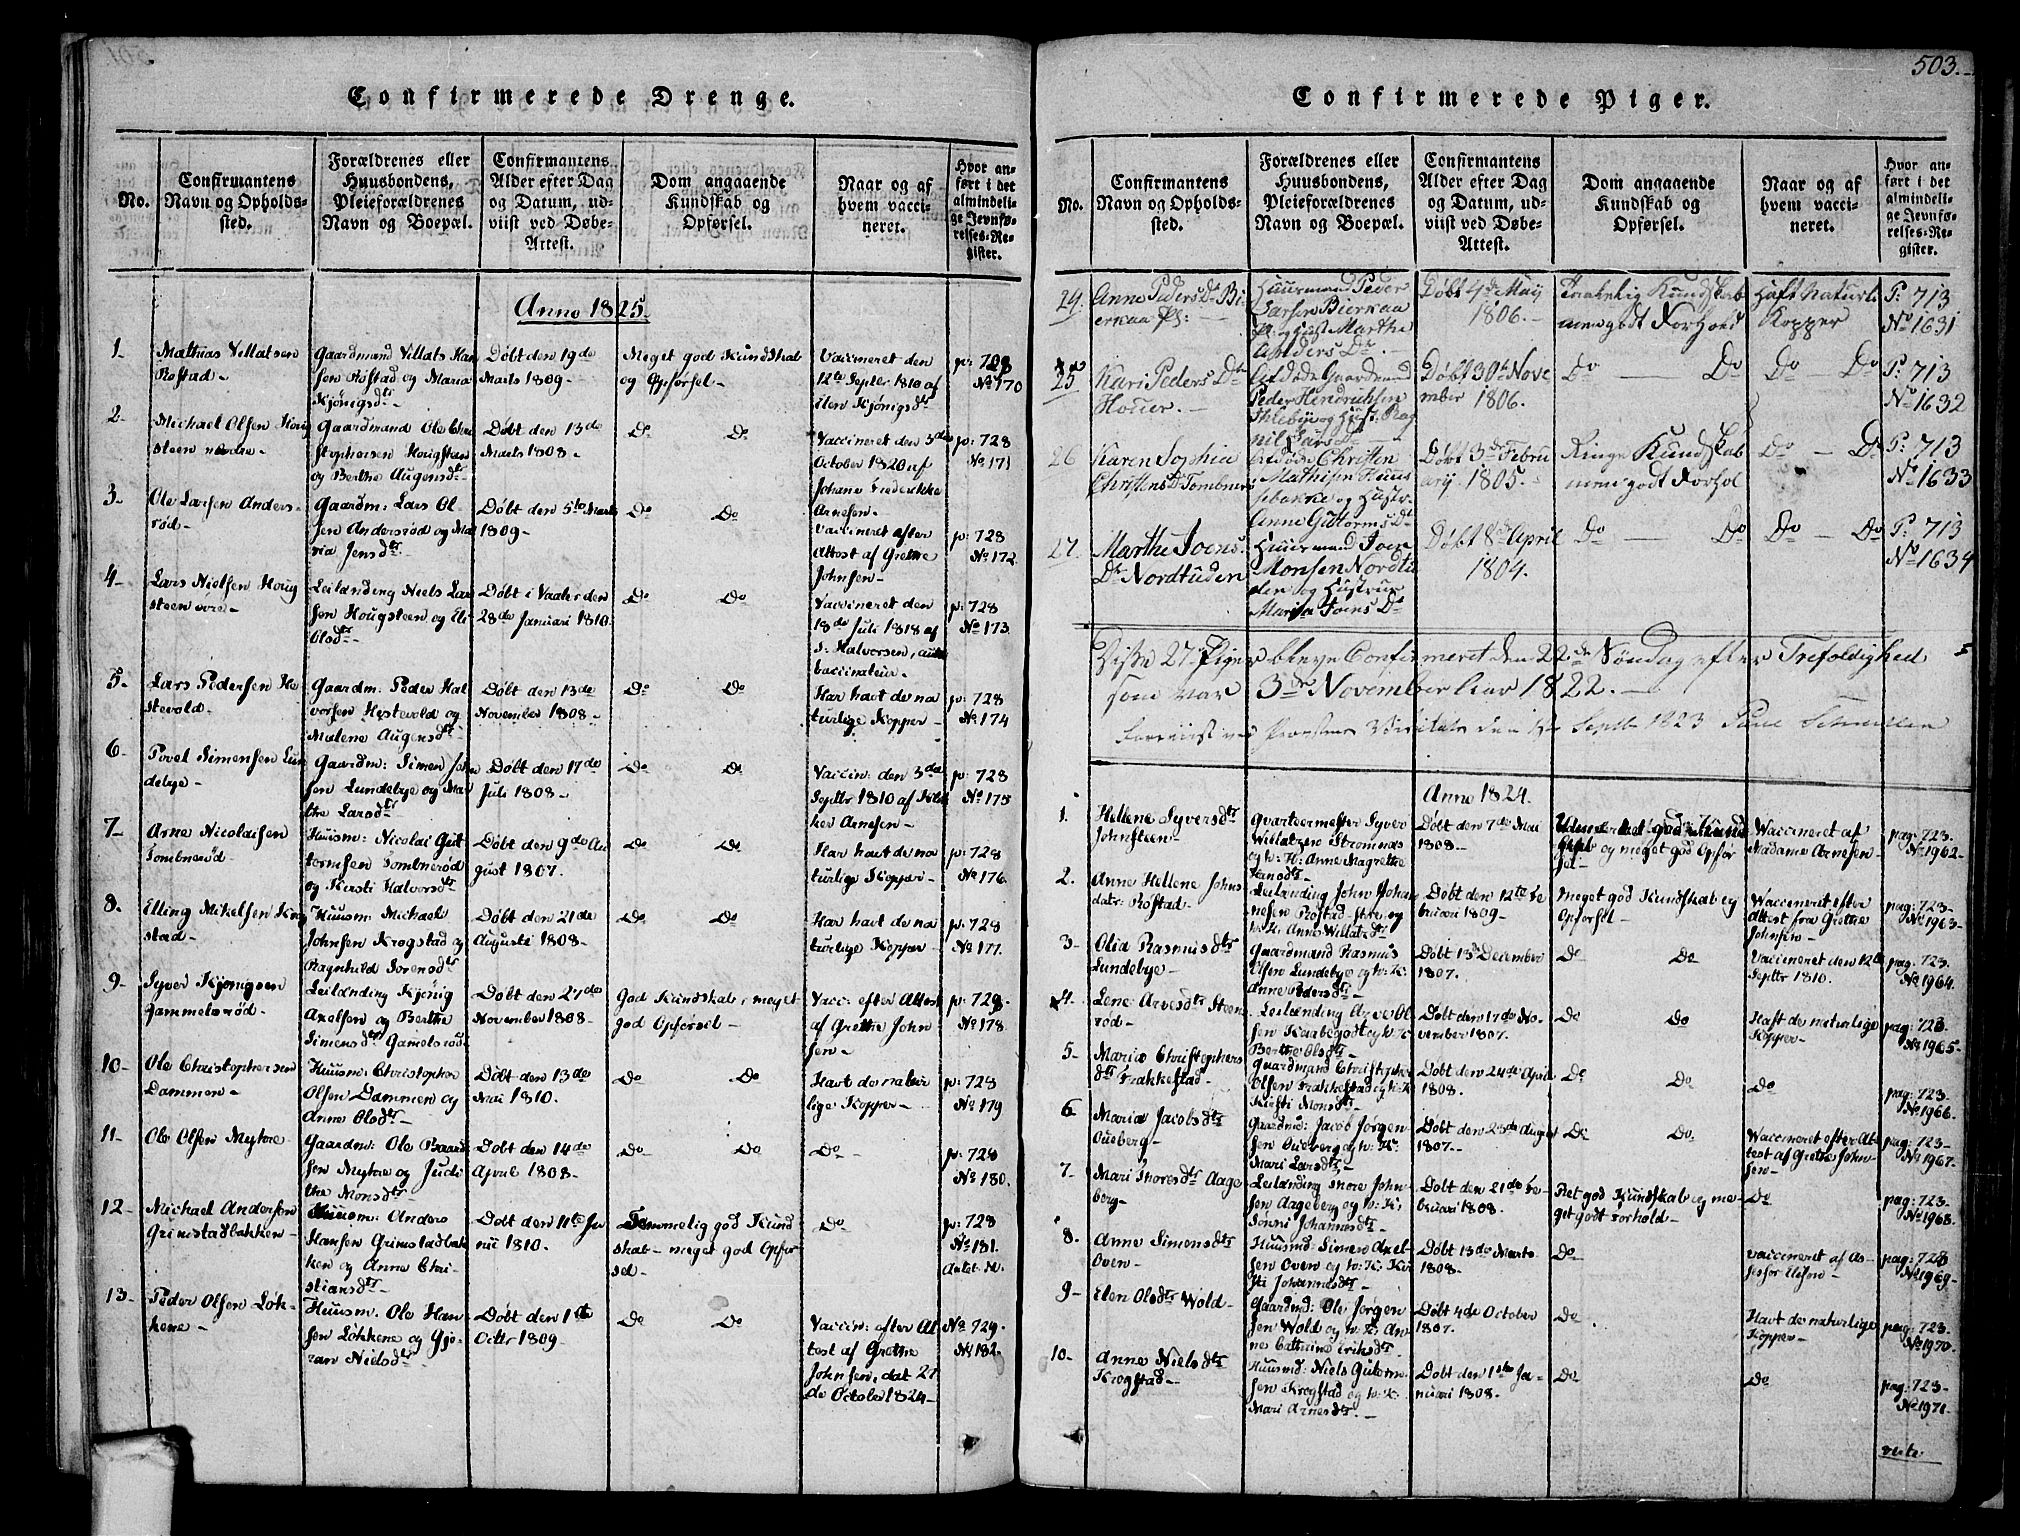 Confirmerede Drenge.
No.
Confirmantens
Navn og Opholds-
sted.
Forældrenes eller
Huusbondens,
Pleieforældrenes
Navn og Boepæl.
Confirmantens
Alder efter Dag
og Datum, ud-
viist ved Døbe-
Attest.
Dom angaaende
Kundskab og
Opførsel.
Naar og af
hvem vacci-
neret.
Hvor an-
ført i det
almindeli-
ge Jevnfø-
relses-Re-
gister.
Anno 1825.
1
Mathias Villatsen
Røstad
Gaardmand Villats Han
sen Røstad og Maria
Kjönigsdtr
Døbt den 19de
Marts 1809
Meget god Kundskab
og Opførsel
Vaccineret den
12te Septbr 1810 af
Kjönigsdtr
No 170
2
Michael Olsen Houg
steen nordre
Gaardmand Ole Chri
stophersen Hougsteen
og Berthe Augensdtr
Døbt den 13de
Marts 1808
Do Do
Vaccineret den 3de
October 1820 af
Johane Frederikke
Arnesen
p: 728
No 171
3
Ole Larsen Anders-
rød
Gaardm: Lars Ol
sen Andersrød og Ma
ria Jensdtr
Døbt den 5te Marts
1809
Do Do
Vaccineret efter
Attest af Grethe
Johnsen
p: 728
No 172
4
Lars Nielsen Houg
steen øvre
Leilænding Niels Lar
sen Hougsteen og Eli
Olsdtr
Døbt i Vaaler den
28de Januari 1810
Do Do
Vaccineret den
18de Juli 1818 af
S: Halvorsen,
vaccinateur
p: 728
No 173
5
Lars Pedersen He
stevold
Gaardm: Peder Hal
vorsen Hestevold og
Malene Augensdtr
Døbt den 13de
November 1808
Do Do
Har havt de na
turlige Kopper
p: 728
No 174
6
Povel Simensen Lun
debye
Gaardm: Simen John
sen Lundebye og Mar
the Larsdtr
Døbt den 17de
Juli 1808
Do Do
Vaccin: den 3de
Septbr 1810 af
Arnesen
p: 728
No 175
7
Arne Nicolaisen
Tombnerød
Huusm: Nicolai Gut
tormsen Tombnerød
og Kirsti Halvorsdtr
Døbt den 9de Au
gust 1807
Do Do
Har havt de na
turlige Kopper
p: 728
No 176
8
Elling Mikelsen Krog
stad
Huusm: Michael
Johnsen Krogstad og
Ragnhild Sorensdtr
Døbt den 21de
Augusti 1808
Do Do
Har havt de na
turlige Kopper
p: 728
No 177
9
Syver Kjönigsen
Gammelsrød
Leilænding Kjönig
Axelsen og Berthe
Simensdtr Gamelsrød
Døbt den 27de
November 1808
God Kundskab, meget
god Opførsel
Vacc: efter Attest
af Grethe John
sen
p: 728
No 178
10
Ole Christophersen
Dammen
Huusm: Christopher
Olsen Dammen og
Anne Olsdtr
Døbt den 13de
Mai 1810
Do Do
Havt de natur
lige Kopper
p: 728
No 179
11
Ole Olsen Mytre
Gaardm: Ole Baard
sen Mytre og Judi
the Monsdtr
Døbt den 14de
April 1808
Do Do
Do
p: 728
No 180
12
Michael Andersen
Grimstadbakken
Huusm: Anders
Hansen Grimstadbak
ken og Anne Chri-
stiansdtr
Døbt den 11te Ju
nii 1810
Temmelig god Kund
skab - meget god Opfør
sel
Do
p: 728
No 181
13
Peder Olsen Løk-
kene
Huusm: Ole Han
sen Løkkene og Gjø-
ran Nielsdtr
Døbt den 1de
Octbr 1809
Do Do
Vaccin: efter At
test af Grethe
Johnsen, dat 27
de October 1824
No 729
No 182
503.
Confirmerede Piger.
No.
Confirmantens
Navn og Opholds-
sted.
Forældrenes eller
Huusbondens,
Pleieforældrenes
Navn og Boepæl.
Confirmantens
Alder efter Dag
og Datum, ud-
viist ved Døbe-
Attest.
Dom angaaende
Kundskab og
Opførsel.
Naar og af
hvem vacci-
neret.
Hvor an-
ført i det
almindeli-
ge Jevnfø-
relses-Re-
gister.
Anne Peders Dtr Bi
erkaa
Huusmand Peder
Larsen Bierkaa
Marthe
Anders Dtr
Døbt 4de May
1806.
Taalelig Kundskab
god Forhold
Haft Naturl
Kopper
P: 713
No 1631
25
Kari Peders Dtr
Houer.
Afdøde Gaardmand
Peder Hindrichsen
og Hust: Rag
nil Lars Dtr
Døbt 30te Nove
mber 1806.
Do Do
Do Do
P: 713
No 1632
26
Karen Sophia
Christens Dtr Tombner
Afdøde Christen
Mathisen Huus
sebakke og Hustr:
Anne Guttorms Dtr
Døbt 3de Febru
ary 1805.
Ringe Kundskab
godt Forhol
Do Do
P: 713
No 1633
27
Marthe Joens
Dtr Nordtuden
Huusmand Joen
Monsen Nordtu
den og Hustrue
Maria Joens Dtr
Døbt 8de April
1804.
Do Do
Do Do
P: 713
No 1634
Disse 27 Piger bleve Confirmeret den 22de Søndag efter Trefoldighed
som var 3de November Aar 1822.
Septbr 1823
Anno 1824.
1.
Hellene Syversdtr
Johnsteen
Qvarteermester Syver
Willatzen Strømnæs
og h: H: Anne Magrethe
Døbt den 7de Mai
1808
og meget god Opfør
sel
Vaccineret af
Madame Arnesen
pag: 723
No 1962
2.
Anne Hellene Johns
datr: Røstad
Leilænding John Johan
nesen Røstad øfre og
h: H: Anne Willatsdtr
Døbt den 12te Fe
bruari 1809
Meget god Kundskab og
Opførsel
Vaccineret efter
Attest fra Grethe
Johnsen
pag: 723
No 1963
3
Olia Rasmusdtr
Lundebye
Gaardmand Rasmus
Olsen Lundebye og h: H:
Anne Pedersdtr
Døbt 13de December
1807.
Do Do
Vaccineret den 12te
Septbr 1810.
pag: 723.
No 1964
4.
Lene Arvesdtr Steens
rød
Leilænding Arve Ol
sen Kaabegodt og h: H:
Berthe Olsdtr
Døbt den 17de No-
vember 1807.
Do Do
Haft de naturlige
Kopper
pag: 723
No 1965
5
Maria Christophers
dtr Frakkestad
Gaardmand Christopher
Olsen Frakkestad og h: H:
Kirsti Monsdtr
Døbt den 24de April
1808.
Do Do
Do
pag: 723.
No 1966.
6
Maria Jacobsdtr
Oueberg
Gaardmd: Jacob Jørgen-
sen Oueberg og h: H:
Mari Larsdtr
Døbt den 23de August
1807.
Do Do
Vaccineret efter At
test af Grethe John-
sen
pag: 723
No 1967.
7.
Mari Snoresdtr Aage
berg
Leilænding Snore John-
sen Aageberg og h: H:
Sønni Johannesdtr
Døbt den 21de Fe-
bruari 1808.
Ret god Kundskab og me-
get godt Forhold
Do
pag: 723
No 1968.
8.
Anne Simensdtr
Oven
Huusmd: Simen Axel-
sen Oven og h: H: Kir
sti Johannesdtr
Døbt 13de Marts
1808
Do
Vaccineret af As-
sessor Elison
pag: 723
No 1969
9
Elen Olsdtr Wold
Gaardmd: Ole Jørgen
sen Wold og h: H: An
ne Cathrine Eriksdtr
Døbt 4de October
1807.
Do
Havt de naturlige
Kopper
pag: 723
No 1970
10
Anne Nielsdtr
Krogstad
Huusmd: Niels Gutorm
sen Krogstad og h: H:
Mari Arnesdtr
Døbt den 1ste Ja-
nuari 1808
Do
Do
pag: 723
No 1971.